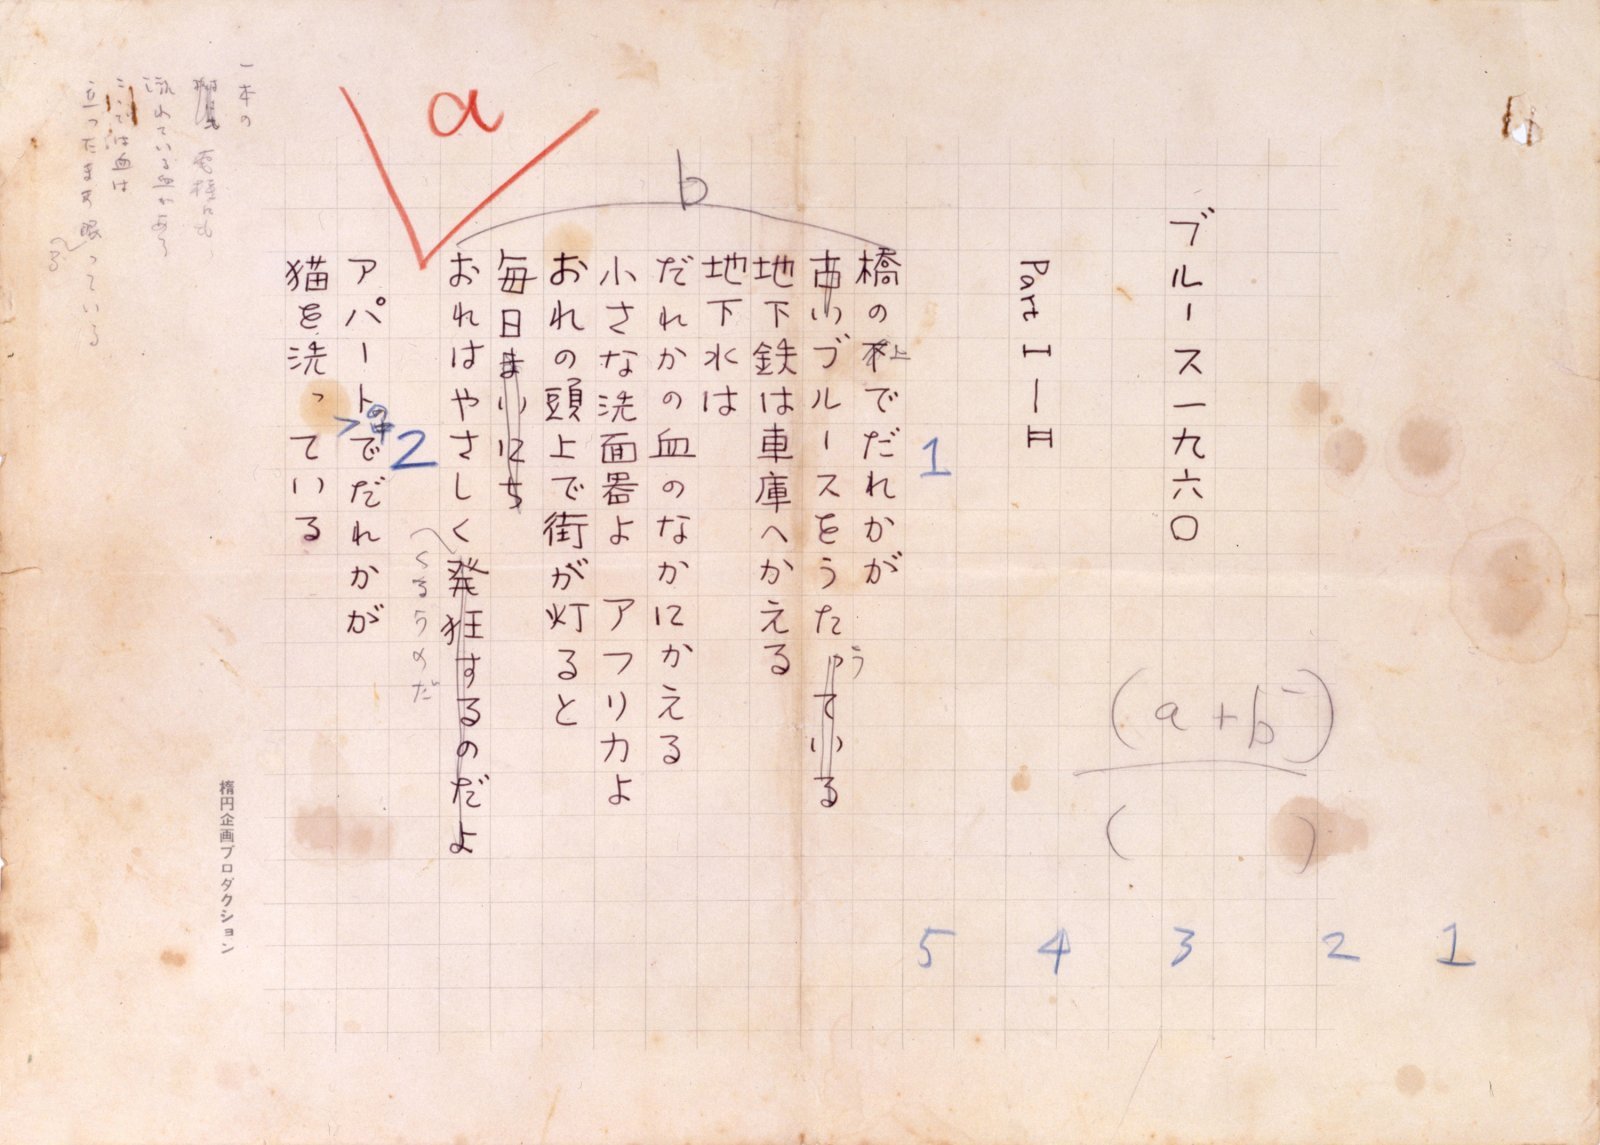 ブルース一九六〇
Part I—日
1
橋の上でだれかが
古いブルースをうたっている
う
地下鉄は車庫へかえる
地下水は
だれかの血のなかにかえる
小さな洗面器よ アフリカよ
おれの頭上で街が灯ると
毎日まいにち
おれはやさしく発狂するのだよ
くるうのだ
2
アパートの中でだれかが
猫を洗っている
a
b
一本の
電柱にも
流れている血がある
そこでは血は
立ったまま眠っている
る
(a+b)
( )
5 4 3 2 1
楕円企画プロダクション